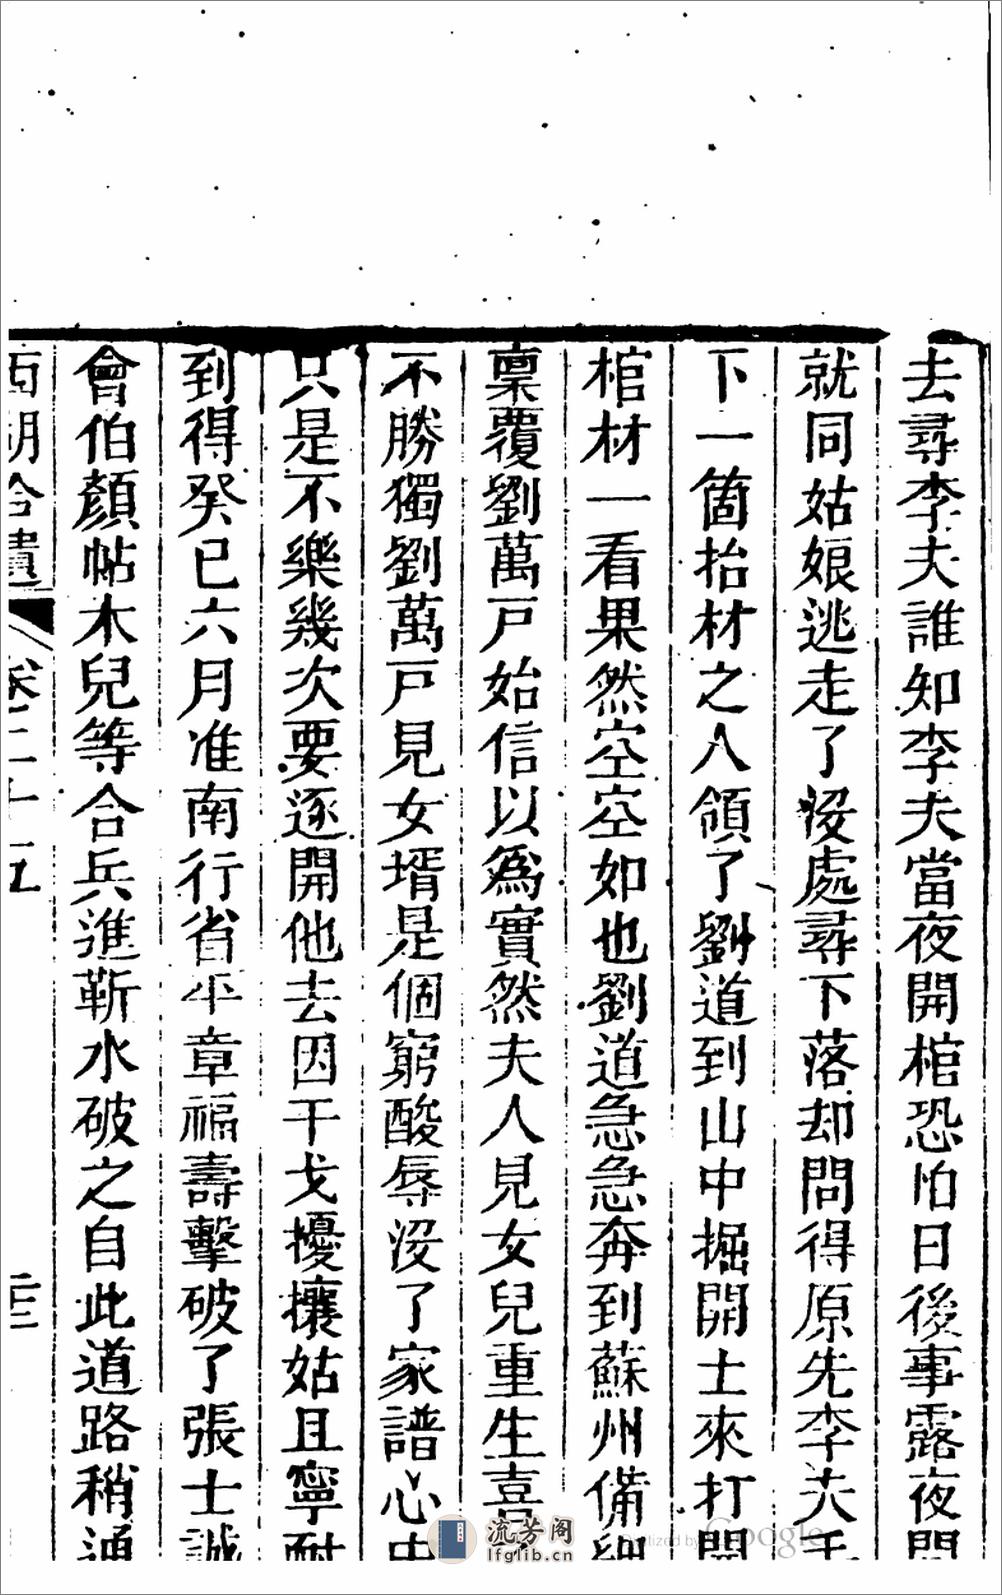 去尋李夫誰知李夫當夜開棺恐怕日後事露夜間
就同姑娘逃走了沒處尋下落却問得原先李夫手
下一箇抬材之人領了劉道到山中掘開土來打開
棺材一看果然空空如也劉道急急奔到蘇州備細
禀覆劉萬戸始信以爲實然夫人見女兒重生喜
不勝獨劉萬戸見女壻是個窮酸辱沒了家譜心中
只是不樂幾次要逐開他去因干戈擾攘姑且寧耐
到得癸巳六月准南行省平章福壽擊破了張士誠
會伯顏帖木兒等合兵進蘄水破之自此道路稍通
西湖合遺 卷二十五 二十三
流芳阁
lfglib.cn
Digitized by Google